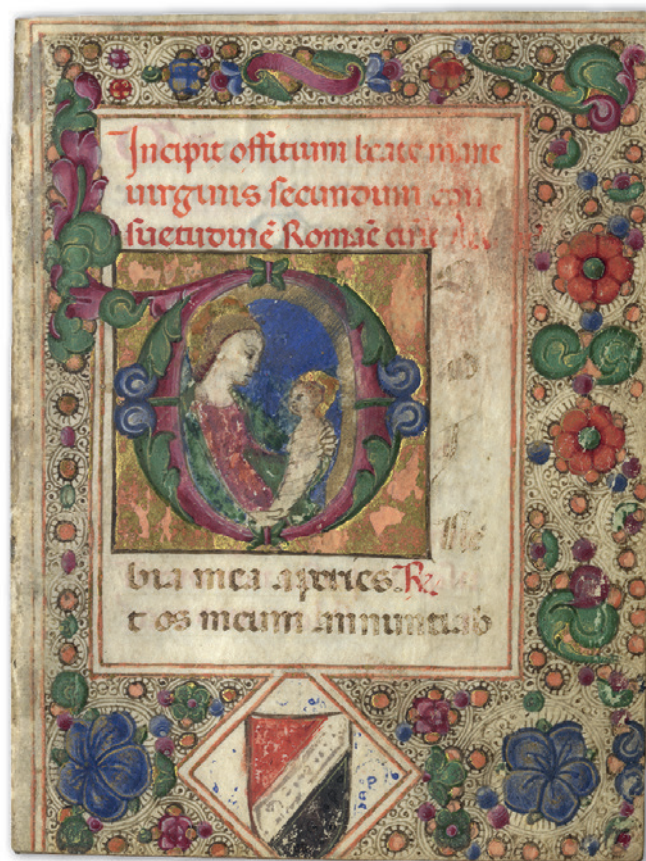 Incipit offitium beate marie
uirginis secundum con
suetudinē Romaē
bia mea aperies. R.
t os meum annuntiab